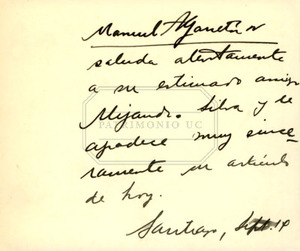 Manuel A Garretón
saluda atentamente
a su estimado amigo
Alejandro Silva y le
agradece muy since-
ramente su artículo
de hoy.
PATRIMONIO UC
Santiago, Sept. 14